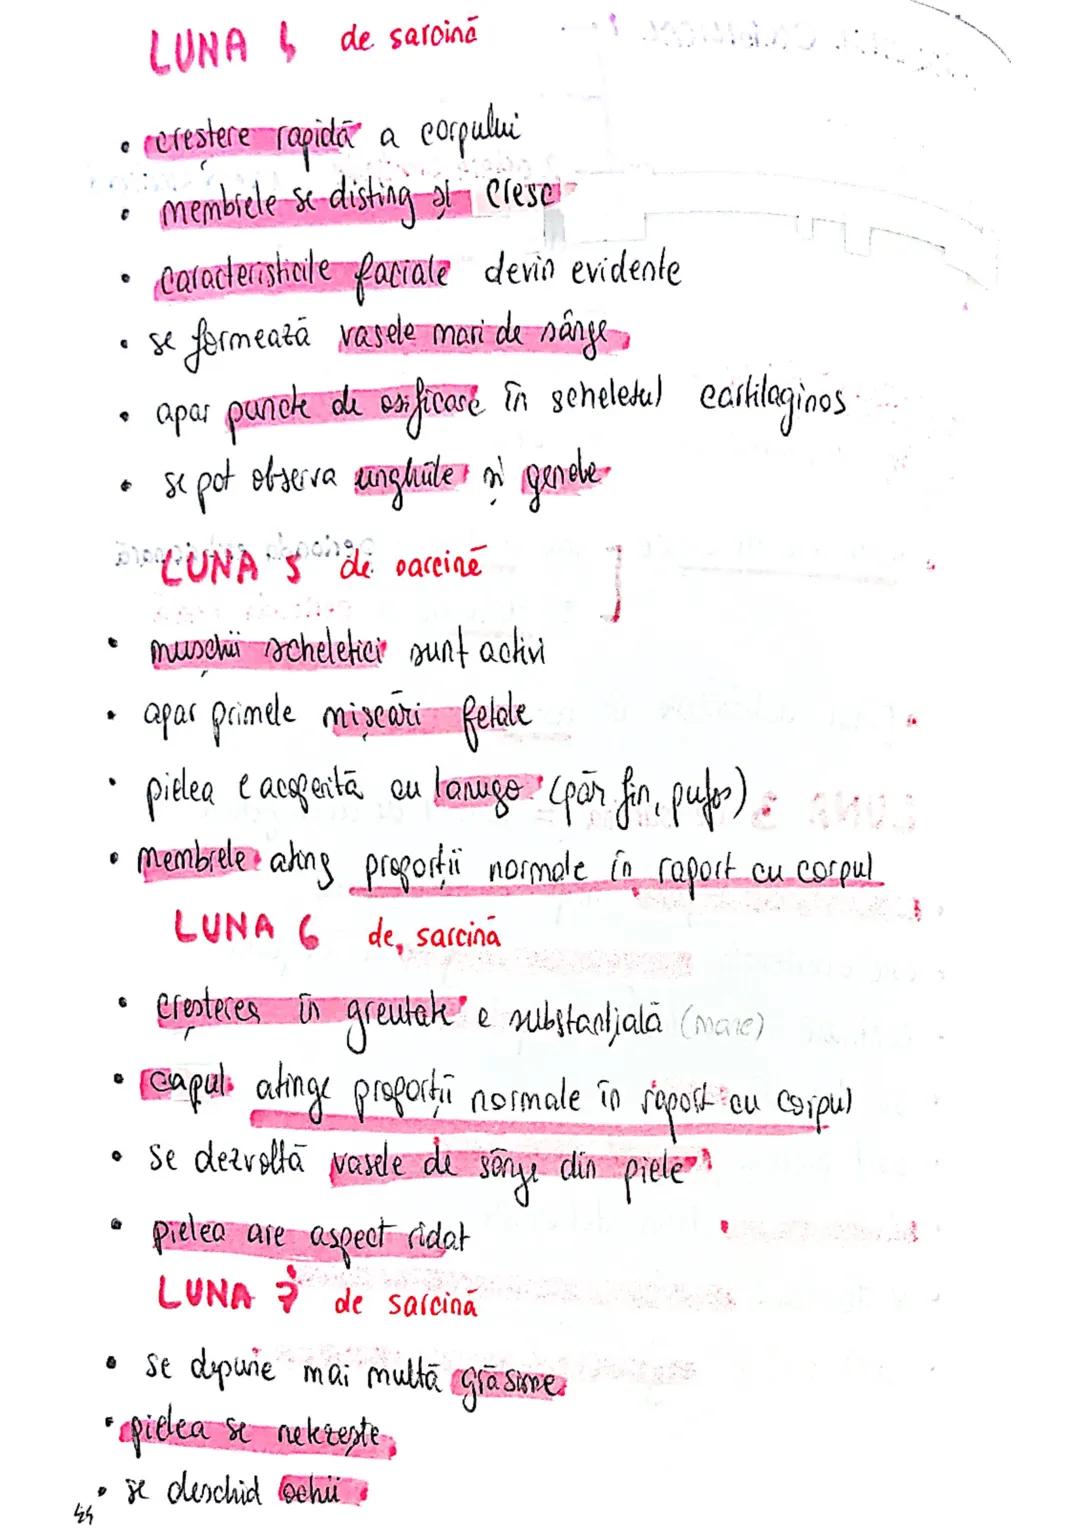 LUNA 4 de sarcină
• creștere rapidă a corpului
• membrele se disting și cresc
• caracteristicile faciale devin evidente
• se formează vasele mari de sânge
• apar puncte de osificare în scheletul cartilaginos
• se pot observa unghiile și genele
LUNA 5 de sarcină
• mușchii scheletici sunt activi
• apar primele mișcări fetale
• pielea e acoperită cu lanugo (păr fin, pufos)
• membrele ating proporții normale în raport cu corpul
LUNA 6 de sarcină
• creșterea în greutate e substanțială (mare)
• capul atinge proporții normale în raport cu corpul
• se dezvoltă vasele de sânge din piele
• pielea are aspect ridat
LUNA 7 de sarcină
• se depune mai multă grăsime
• pielea se netezește
• se deschid ochii